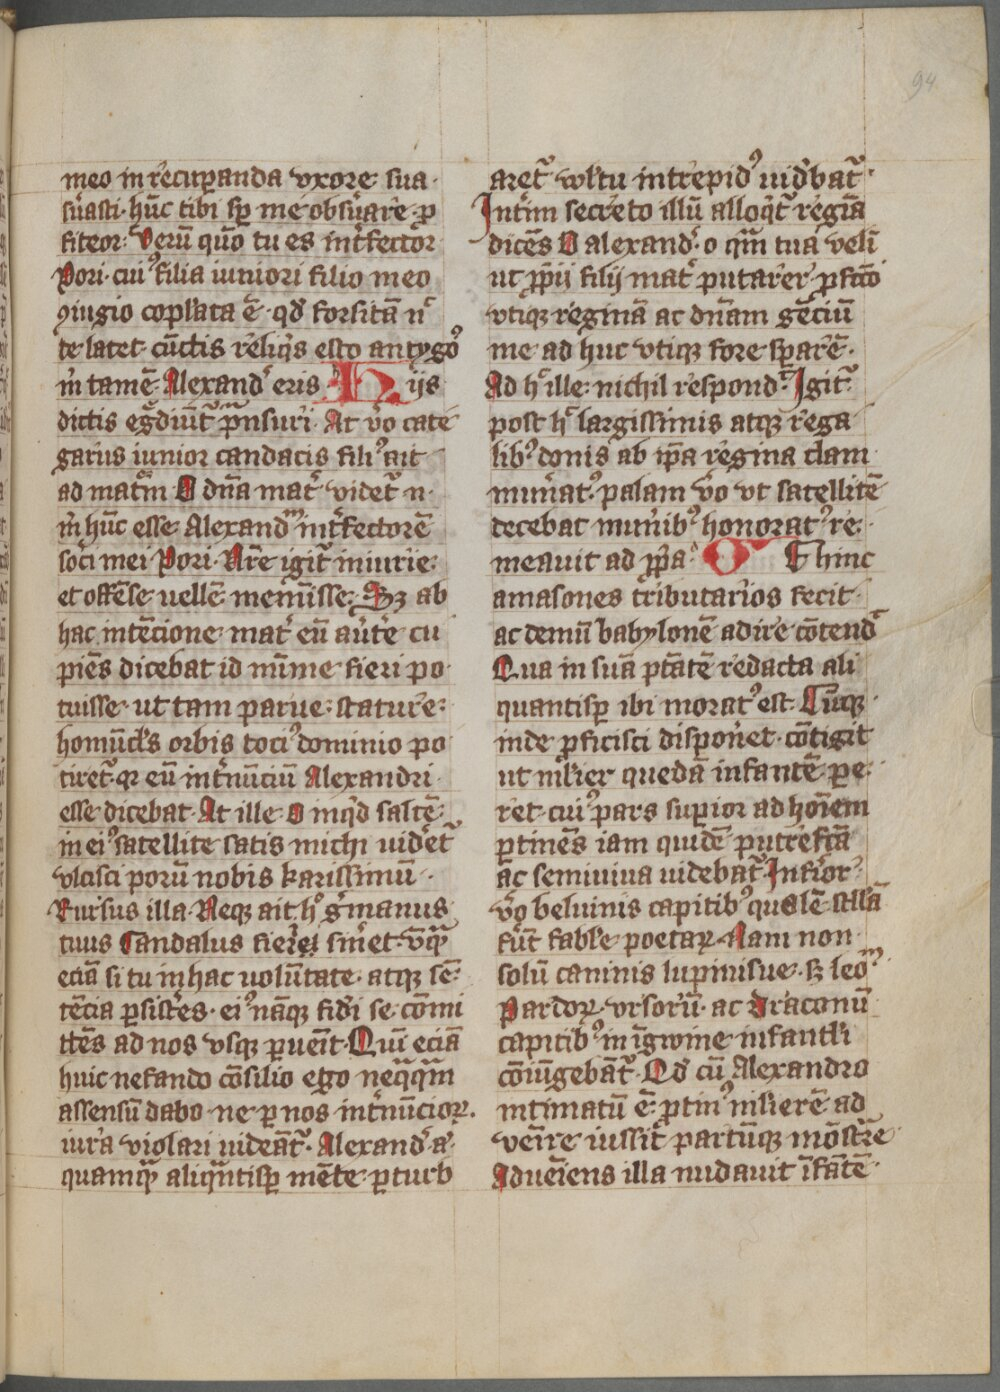 94
meo in recuꝑanda vxore sua·
suasti· hūc tibi sꝑ me obsuare ꝓ
fiteor: Verū quō tu es int̄fector
Pori· cui⁹ filia iuniori filio meo
ꝯiugio copl'ata ē· qd' forsitā n̄
te latet cūctis reliq̄s esto antygo⁹
m̄ tamē Alexand' eris· Hijs
dictis eḡdiūt' p̄nsuri· At v̄o cate
garus iunior candacis fili⁹ ait
ad mat̄m O dn̄a mat' videt' n·
m̄ hūc esse Alexand̄m int̄fectorē
soc̄i mei Pori· Nr̄e igit' iniurie:
et offēse uellē memīsse: Sꝫ ab
hac intēcione mat' eū au'te cu
piēs dicebat id mīme fieri po
tuisse· ut tam parue: stature:
homūcl's orbis toci⁹ dominio po
tiret' qr eū int̄nūciū Alexandri·
esse dicebat· At ille· O inq̄d saltē:
in ei⁹ satellite satis michi uidet'
vlcisci porū nobis karissimū·
Rursus illa· Neqꝫ ait h⁹ g'manus
tuus Candalus fiere sinet· v̄q̄
eciā si tu in hac uolūtate· atqꝫ sē
tēcia ꝑsistes· ei⁹ nāqꝫ fidi se cōmi
ttēs ad nos vsqꝫ ꝑuēit· Qui eciā
huic nefando cōsilio ego neqq̄m
assensū dabo· ne ꝑ nos int̄nūcioꝝ·
iura violari uideāt'· Alexand' a'
quamq̄ aliq̄ntisꝑ mēte ꝑturb
aret' vultu intrepid⁹ uid'bat'·
Int'im secreto illū alloqt' regīa
dicēs O alexand'· o q̄m tua velī
ut ꝓp̄ii filij mat' putarer· ꝓfcō
vtiqꝫ reginā ac dn̄am gēciū
me ad huc vtiqꝫ fore sꝑarē·
Ad h' ille· nichil respond' Igit'
post h' largissimis atqꝫ rega
lib⁹ donis ab ip̄a regina clam
mun'at⁹· palam v̄o vt satellitē
decebat mun'ib⁹ honorat⁹ re:
meauit ad ꝓp̄a· OThinc
amasones tributarios fecit·
ac demū babylonē adire cōtend'
Qua in suā ptātē redacta ali
quantisꝑ ibi morat⁹ est· Cūqꝫ·
inde ꝓficisci dispon'et· cōtigit
ut mlier quedā infantē pe:
ret· cui⁹ pars suꝑior ad hoīem
ꝑtinēs iam quidē putrefcā
ac semiuiua uidebat' Inf'ior'
v̄o beluinis capitib⁹ qualē scillā
fūt fabl'e poetaꝝ· Nam non·
solū caninis lupinisue· sꝫ leo̅m
Pardoꝝ· vrsorū· ac draconū
capitib⁹ in īgwine infantl'i
cōiūgebāt'· Qd' cū Alexandro
intimatū ē· ꝓtin⁹ mlierē ad
venire iussit· partūqꝫ mōstre
Aduēiens illa nudauit īfātē·